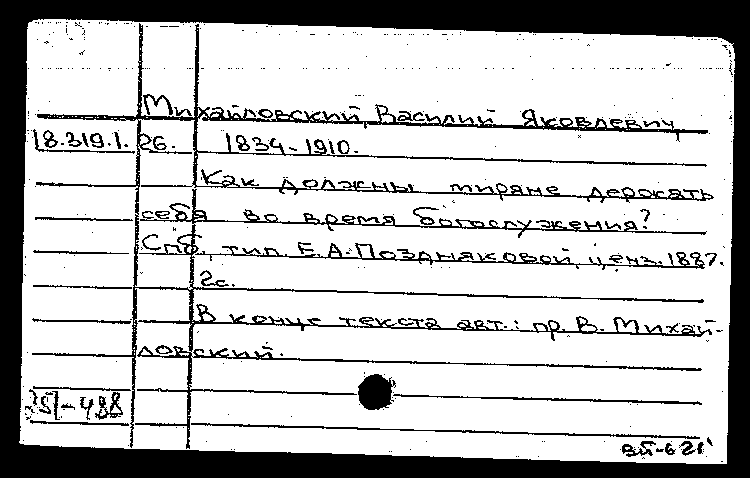 Михайловский, Василий Яковлевич,
18.319.1.26. 1834-1910.
Как должны миряне держать
себя во время богослужения?
Спб., тип. Е.А. Поздняковой, ценз. 1887.
2с.
В конце текста авт.: пр. В. Михай-
ловский.
251-488